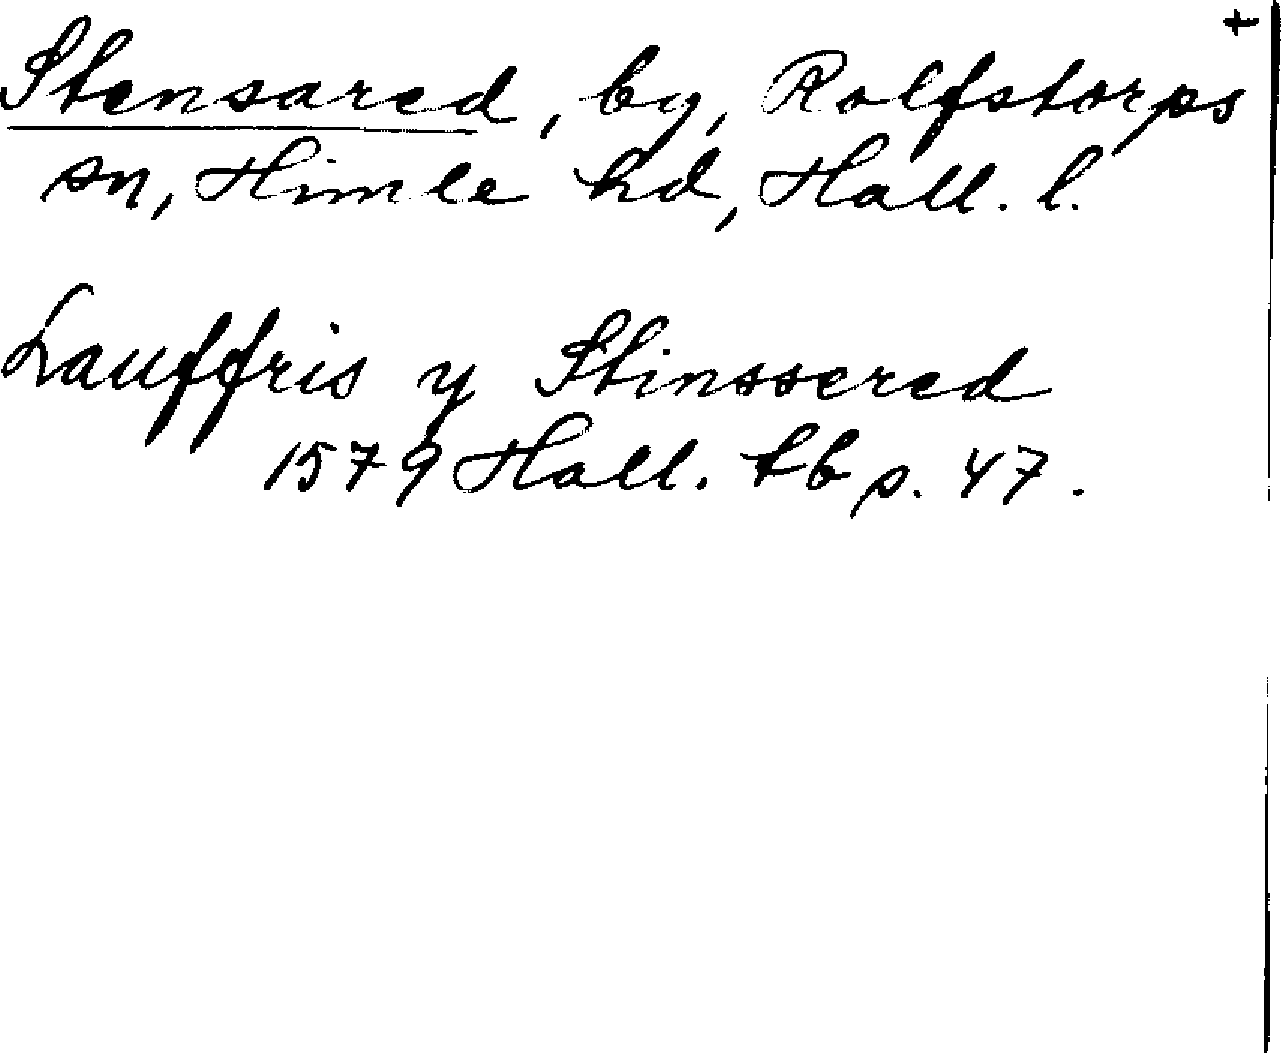 +
Stensared, by, Rolfstorps
sn, Himle hd, Hall. l.
Lauffris y Stinssered
1579 Hall. tb s. 47.